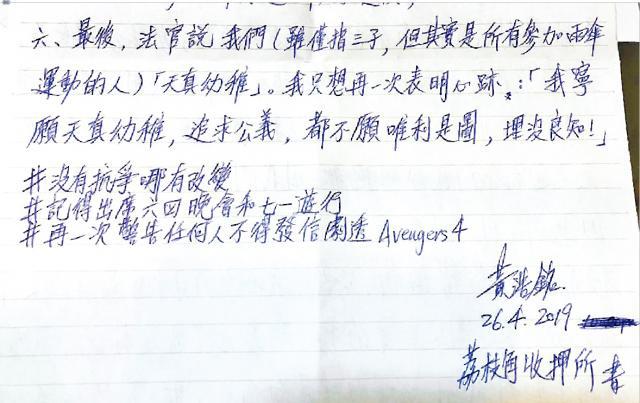 六、最後，法官說我們（雖僅指三子，但其實是所有參加雨傘
運動的人）「天真幼稚」。我只想再一次表明心跡：「我寧
願天真幼稚，追求公義，都不願唯利是圖，埋沒良知！」
#沒有抗爭哪有改變
#記得出席六四晚會和七一遊行
#再一次警告任何人不得發信劇透 Avengers 4
黃浩銘
26.4.2019
荔枝角收押所 書